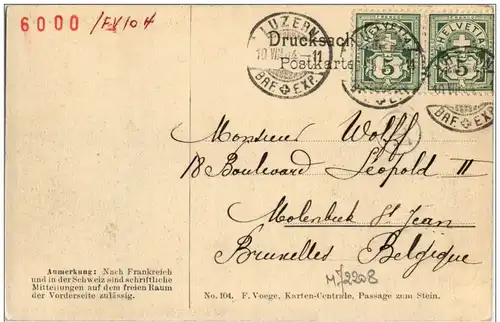 6000 /EX 10 H
LUZERN
10.VIII.04–11
BRF. EXP.
HELVETIA
5
HELVETIA
5
BRF. EXP.
Drucksach
Postkarte
Monsieur Wolff
18 Boulevard Leopold II
Molenbeek St Jean
Bruxelles Belgique
M72208
Anmerkung: Nach Frankreich
und in der Schweiz sind schriftliche
Mitteilungen auf dem freien Raum
der Vorderseite zulässig.
No. 104. F. Voege, Karten-Centrale, Passage zum Stein.